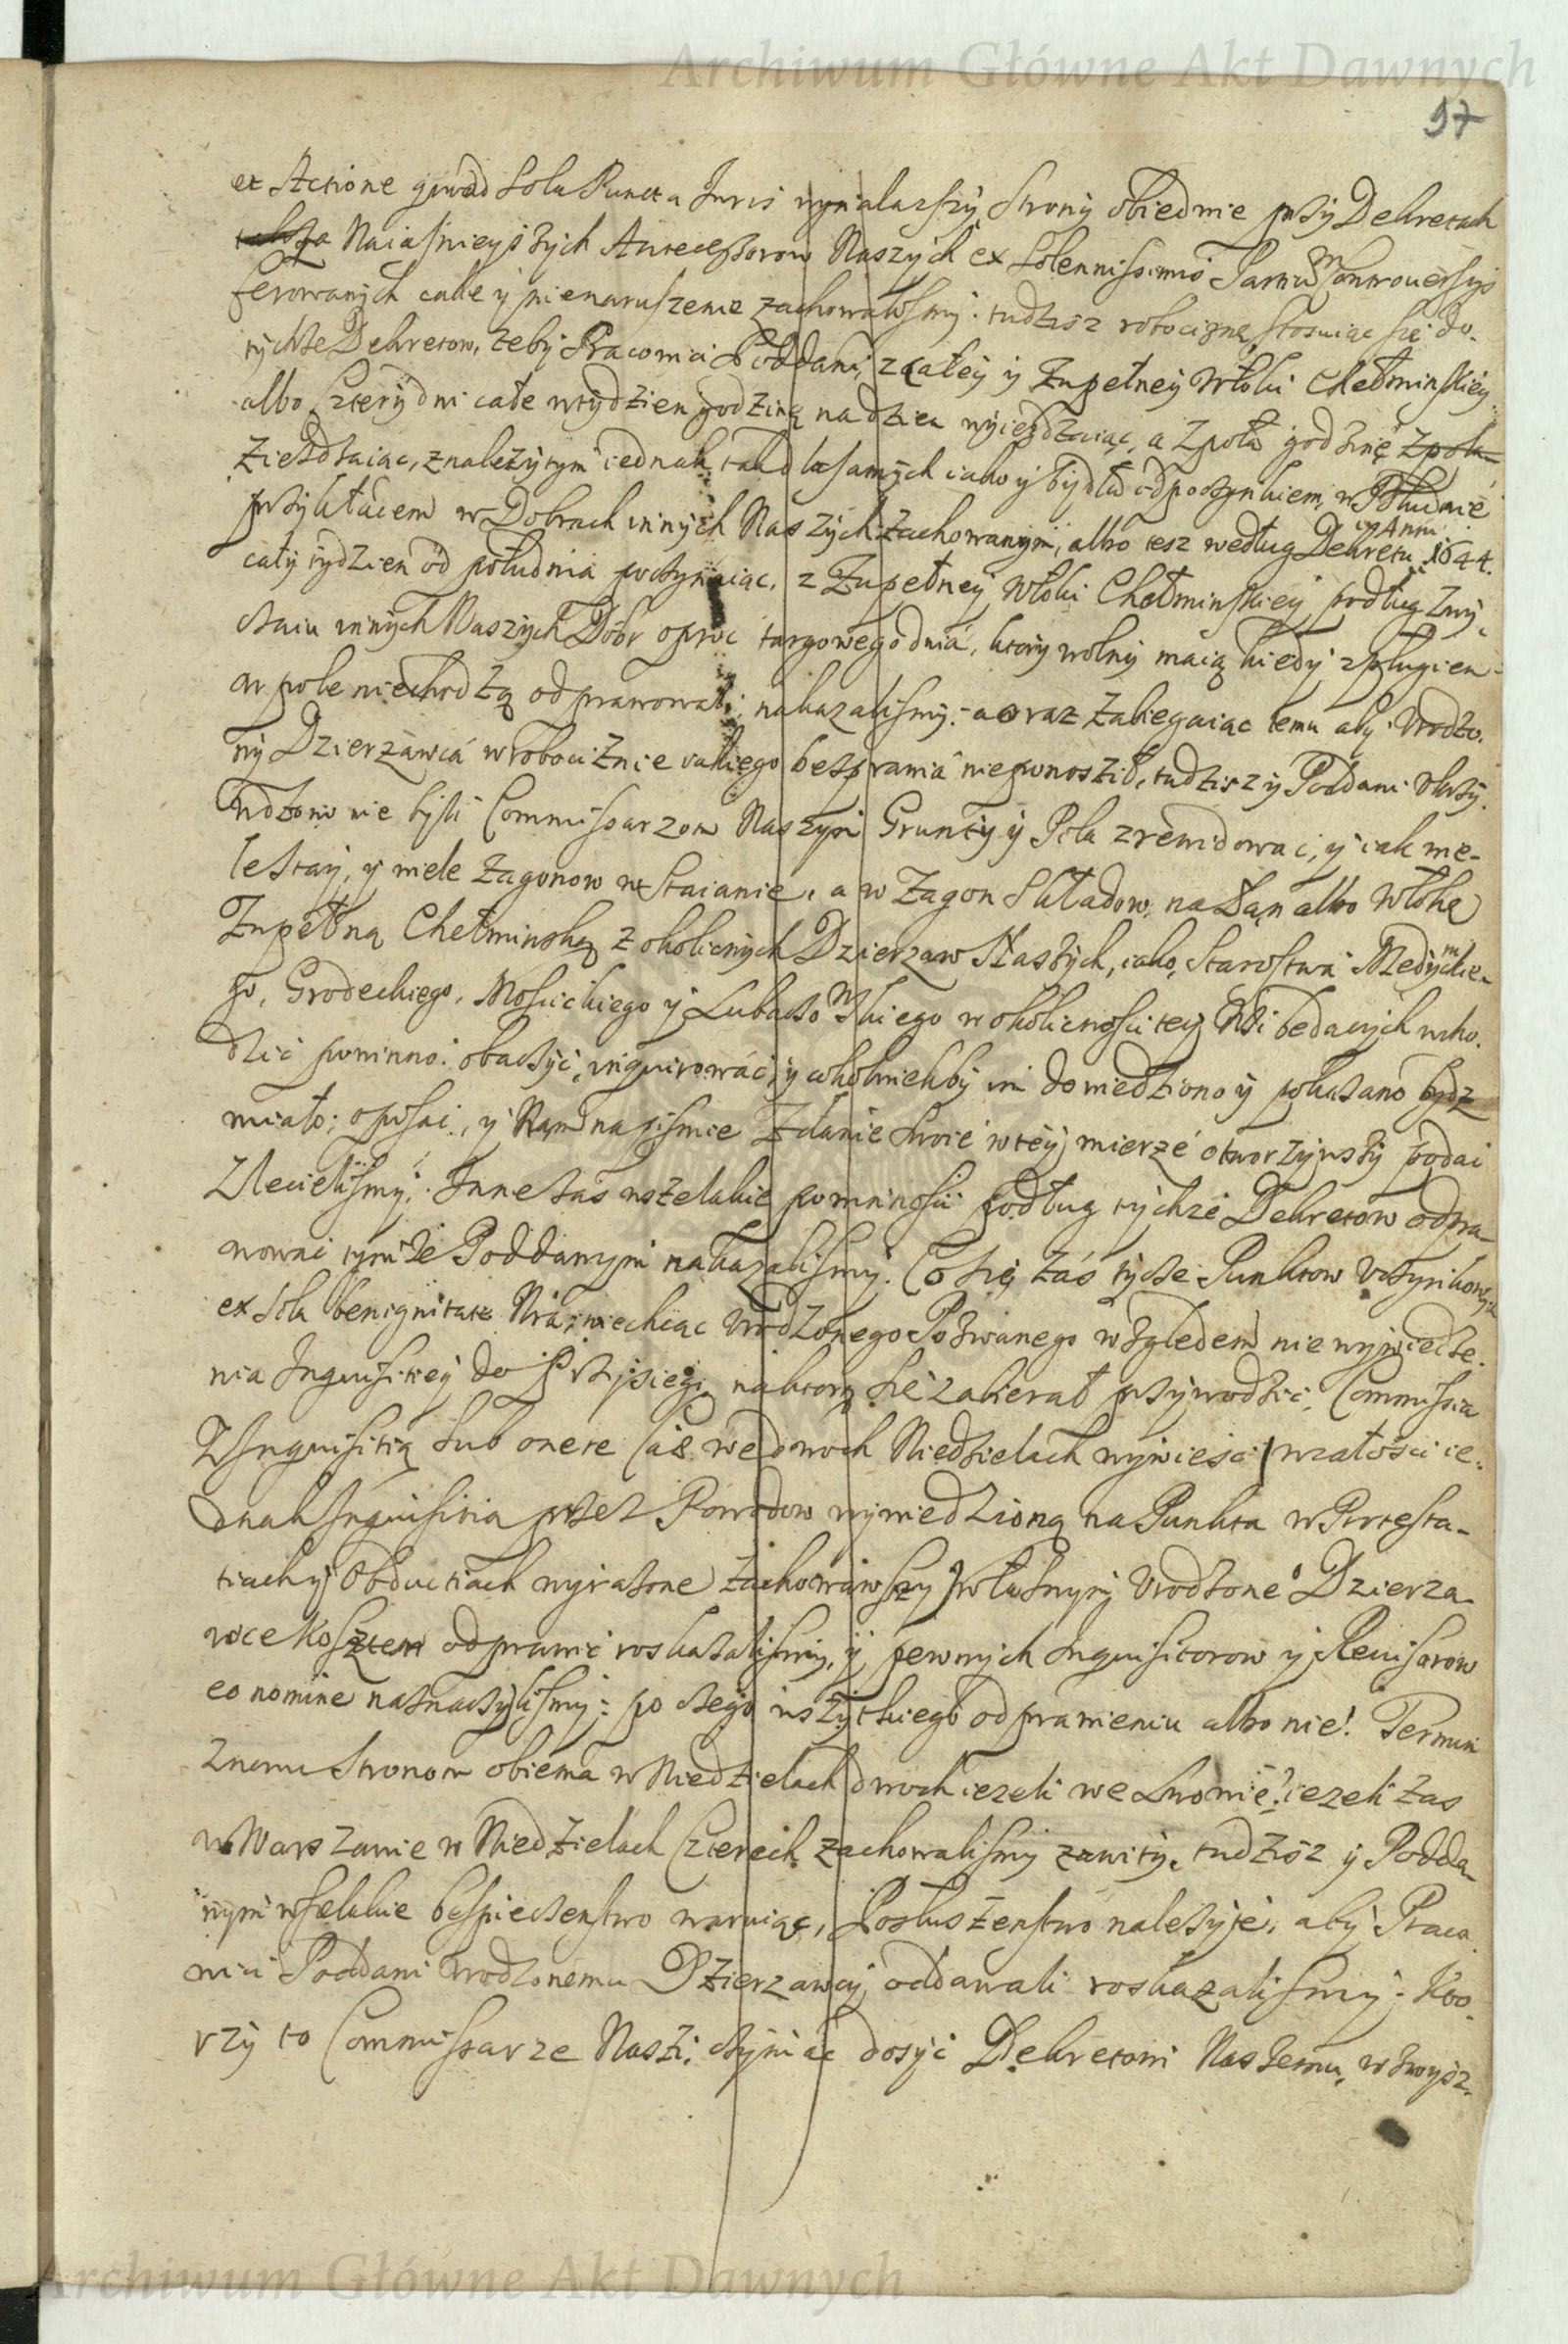 Archiwum Główne Akt Dawnych
97
et Actione quoad sola Puncta Juris wynalazszy Strony obiedwie przy Dekretach
Naiasnieyszych Antecessorow Naszych ex solennissimis Partium Controuersys
ferowanych całe y nienaruszenie zachowalismy: tudzisz robociznę, stosuiąc się do
tychże Dekretow, żeby Pracowici Poddani, z całey y zupełney Włoki Chełminskiey
albo Cztery dni całe w tydzien godzinę na dzien wyieżdzaiąc, a z poła godzinę z poła
zieżdzaiąc, z należytym iednak tak dla samych iako y bydła odpoczynkiem, w Południe
przykładem w Dobrach innych Naszych zachowanym, albo tesz według Dekretu in Anni 1644.
cały tydzien od południa poczynaiąc, z Zupełney Włoki Chełminskiey podług Zwy
czaiu innych Naszych Dobr oproc targowego dnia, ktory wolny maią kiedy z pługiem
w pole niechodzą odprawowali, nakazalismy: a oraz zabiegaiąc temu aby Urodzo
ny Dzierzawca w robociznie iakiego bezprawia niewnosził, tudzisz y Poddani Ukrzy
wdzoni nie byli Commissarzom Naszym Grunty y Pola zrewidować, y iak wie-
le Stay, y wiele Zagonow w Staianie, a w Zagon Składow, na Łan albo Włokę
Zupełną Chełminską z okolicznych Dzierzaw Naszych, iako, Starostwa Medyckie-
go, Grodeckiego, Mościckiego y Lubaczowskiego w okolicznosci tey Wsi będących wcho
dzić powinno: obaczyć, inquirować, y cokolwiekby im dowiedziono y pokazano bydz
miało; opisać, y Nam na pismie Zdanie swoie w tey mierze otworzywszy podać
Zlecielismy. Inne zas wszelakie powinnosci podług tychże Dekretow odpra
wować tymże Poddanym nakazalismy. Co się zaś tycze Punktow Uczynkowych
ex sola benignitate Nra, niechcąc Urodzonego Pozwanego względem niewywiedze
nia Inquisitiey do Przysięgi, na ktorą się zabierał przywodzić, Commissią
Z Inquisitią sub onere Cas. we dwoch Niedzielach wywieść, w całosci ie
dnak Inquisitia przez Powodow wywiedzioną na Punkta w Protesta-
tiach y Obductiach wyrazone zachowawszy, własnym Urodzone Dzierza
wce Kosztem odprawić roskazalismy, y pewnych Inquisitorow y Reuisorow
eo nomine naznaczylismy: po czego wszystkiego odprawieniu albo nie. Termin
znowu Stronom obiema w Niedzielach dwoch iezeli we Lwowie, iezeli zas
w Warszawie w Niedzielach Czterech zachowalismy zawity, tudzisz y Podda
nym wszelakie bespieczenstwo waruiąc, Posłuszenstwo należyte, aby Praco
wici Poddani Urodzonemu Dzierzawcy oddawali roskazalismy: Kto
rzy to Commissarze Naszi, czyniąc dosyć Dekretowi Naszemu, w zwysz
Archiwum Główne Akt Dawnych